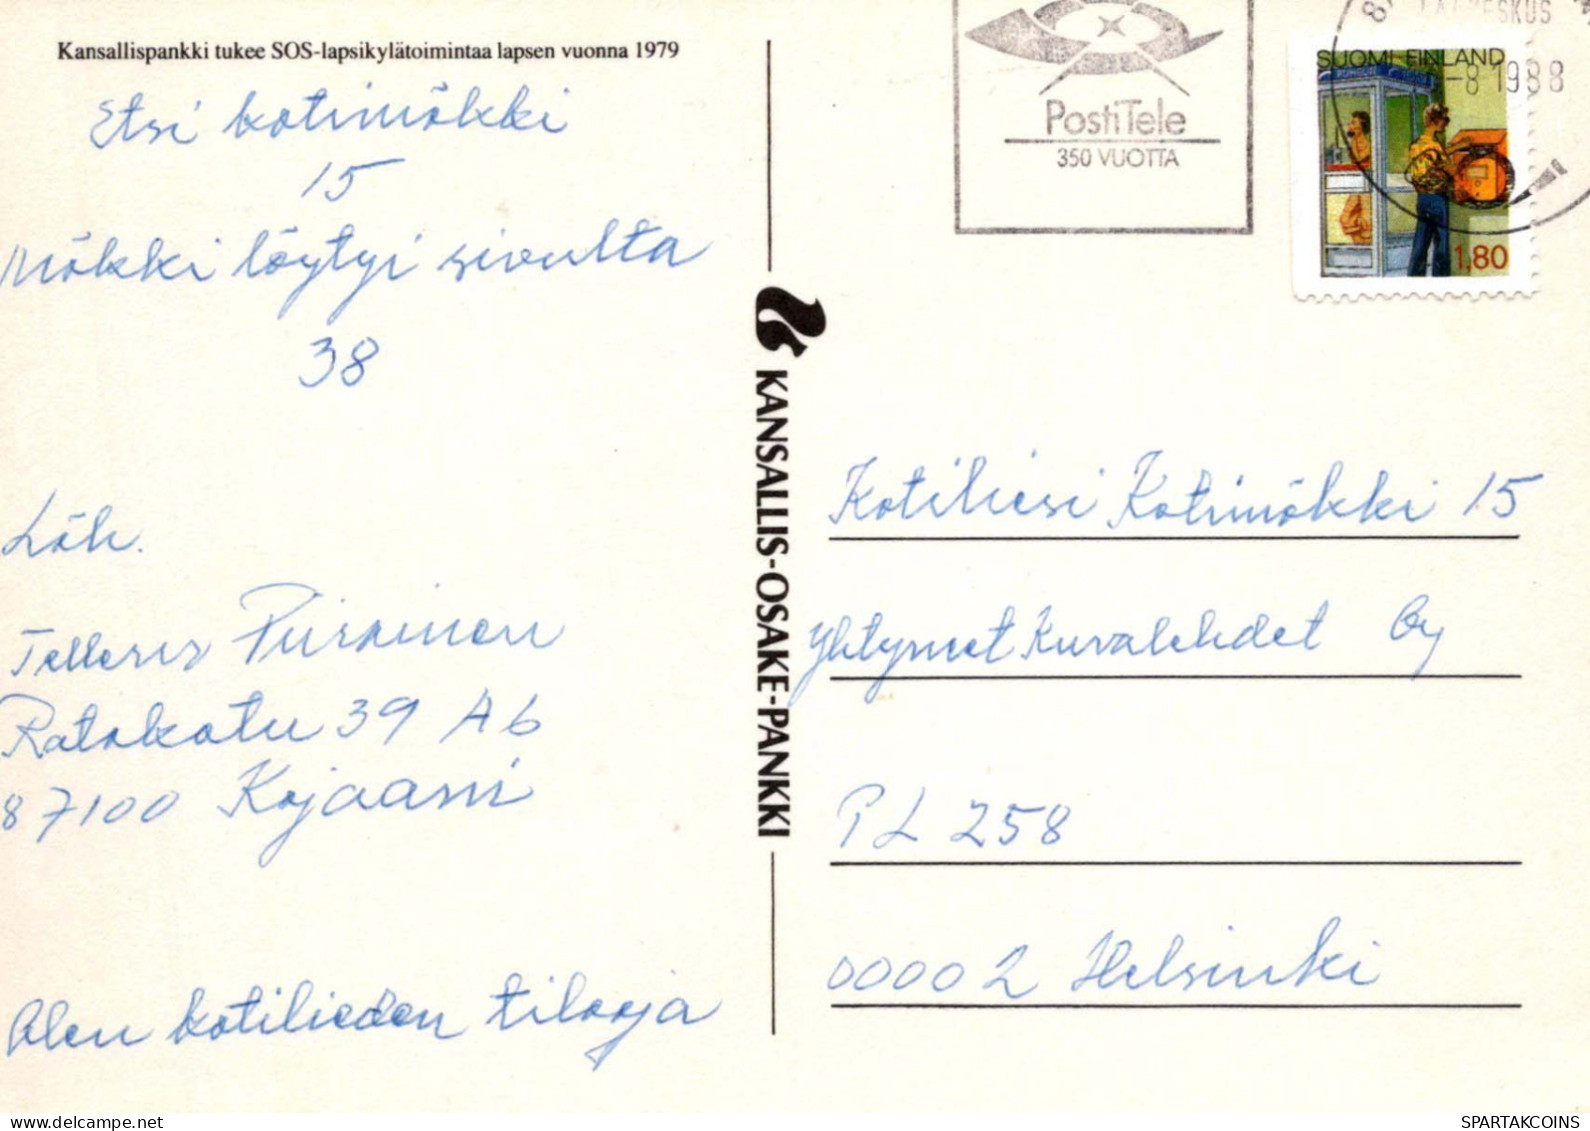 Kansallispankki tukee SOS-lapsikylätoimintaa lapsen vuonna 1979
Etsi kotimökki
15
Mökki löytyi sivulta
38
Läh.
Piirainen
Ratakatu 39 A6
87100 Kajaani
Olen kotilieden tilaaja
KANSALLIS-OSAKE-PANKKI
PostiTele
350 VUOTTA
SUOMI FINLAND
-8 1988
1,80
Kotiliesi Kotimökki 15
Yhtyneet Kuvalehdet Oy
PL 258
00002 Helsinki
SPARTAKCOINS